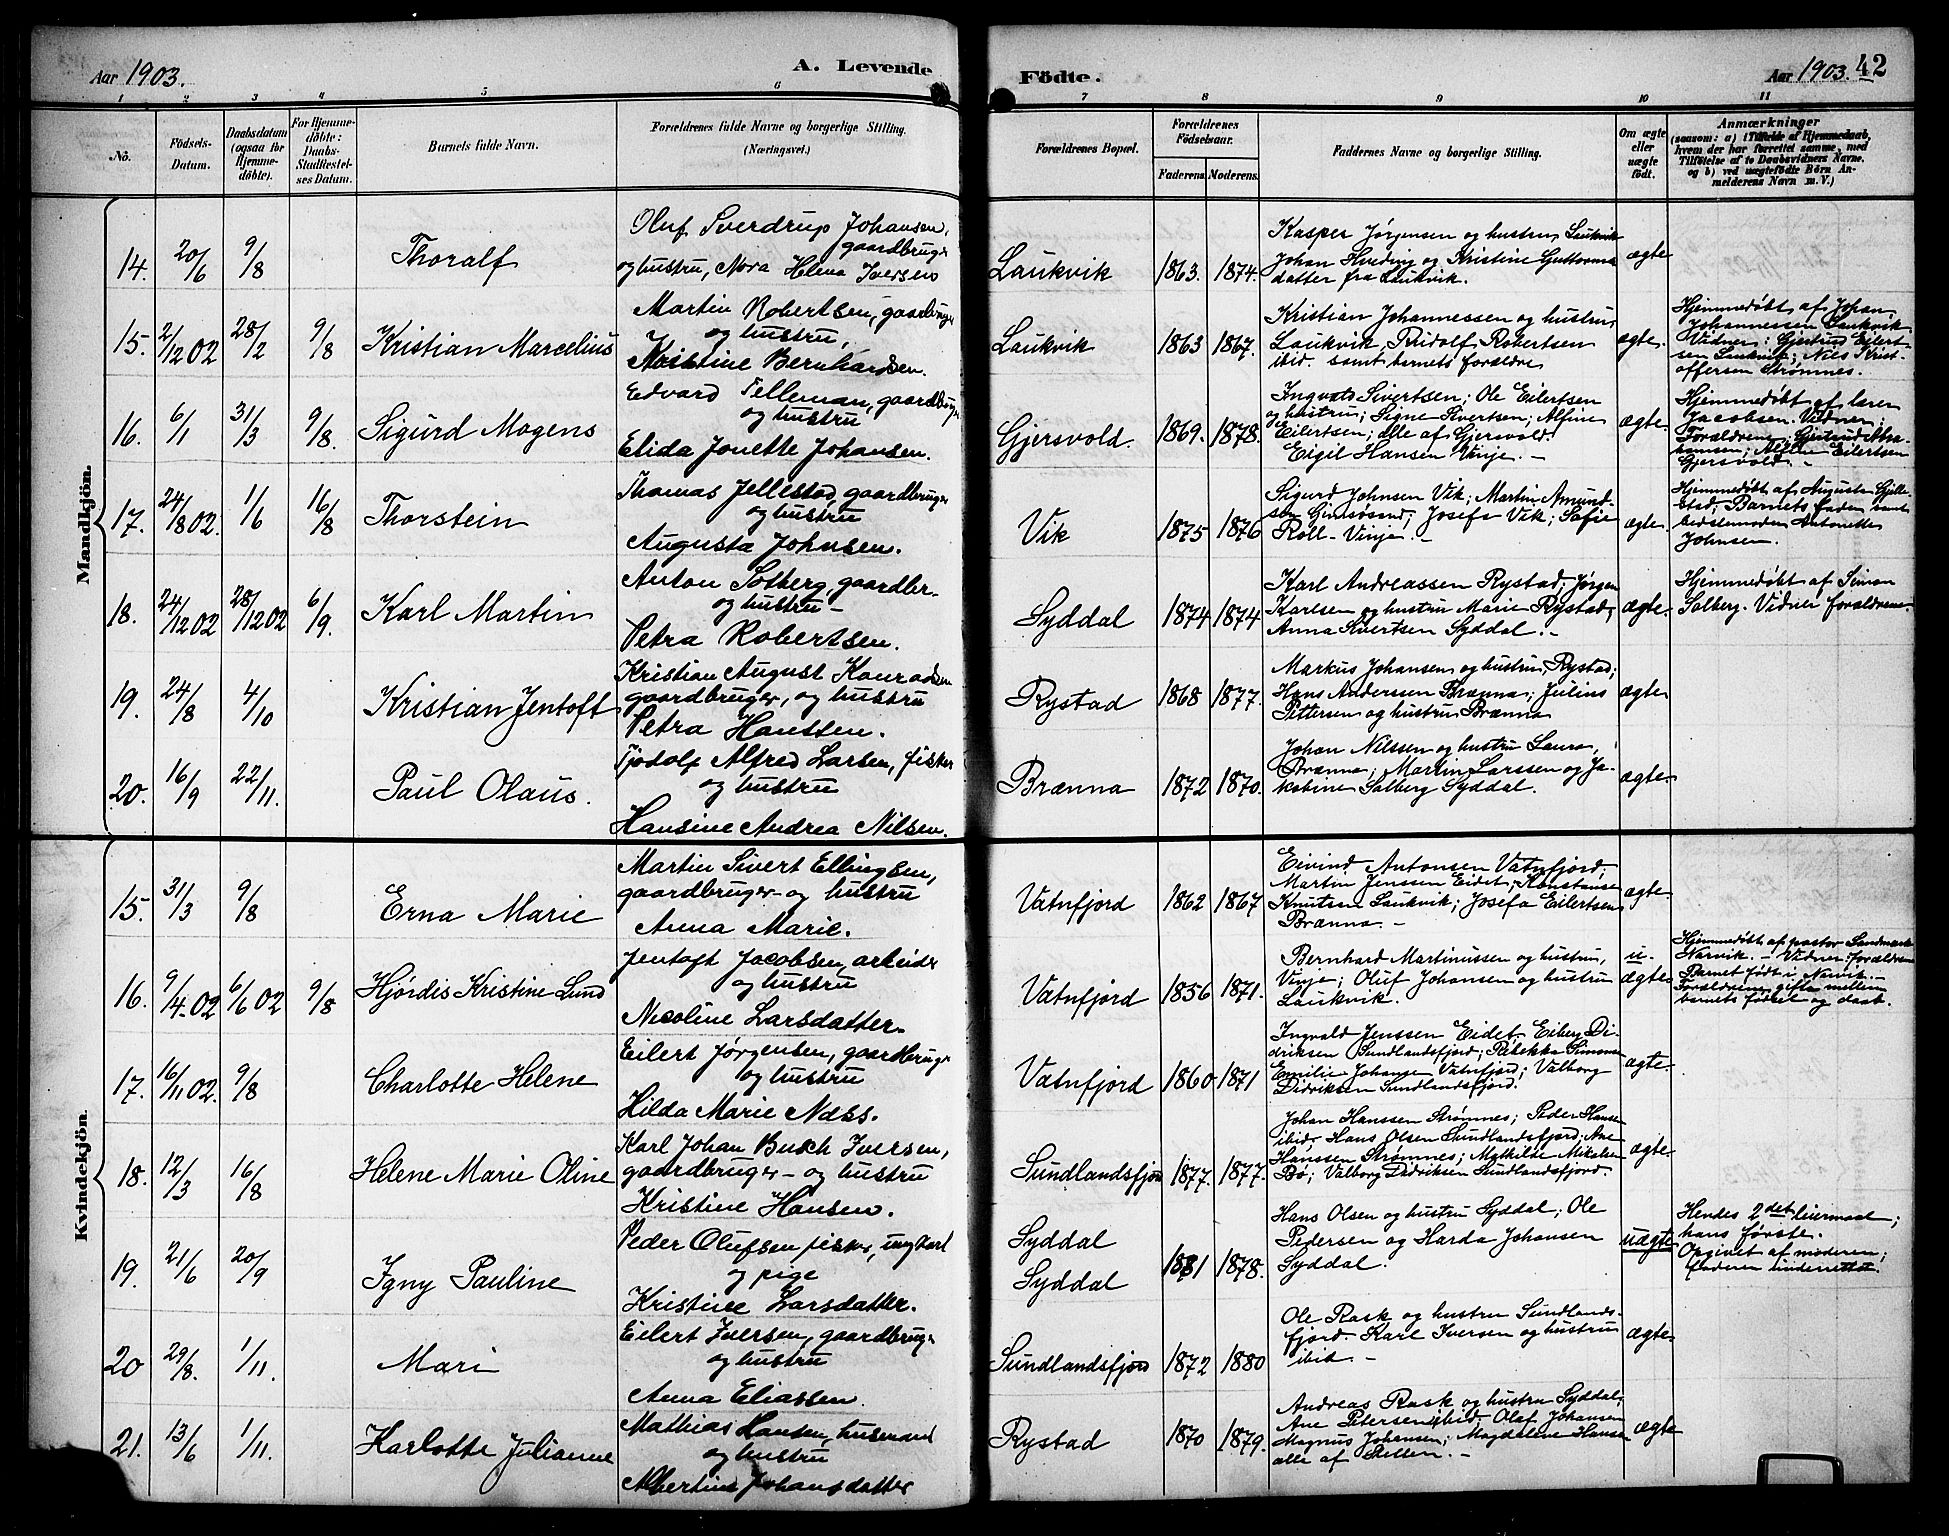 Aar 1903.
A. Levende
Födte.
Aar 1903.
42
1 2 3 4 5 6
7 8 9 10 11
No.
Födsels-
Datum.
Daabsdatum
(ogsaa for
Hjemme-
döbte).
For Hjemme-
döbte:
Daabs-
Stadfæstel-
ses Datum.
Barnets fulde Navn.
Forældrenes fulde Navne og borgerlige Stilling.
(Næringsvei.)
Forældrenes Bopæl.
Forældrenes
Födselsaar.
Faderens.
Moderens.
Faddernes Navne og borgerlige Stilling.
Om ægte
eller
uægte
födt.
Anmærkninger
(saasom: a) i Tilfælde af Hjemmedaab,
hvem der har forrettet samme, med
Tilföielse af to Daabsvidners Navne,
og b) ved uægtefödte Börn An-
melderens Navn m. V.)
Mandkjön.
14.
20/6
9/8
Thoralf
Oluf Sverdrup Johansen,
gaardbruger
og hustru, Nora Helena Iversen
Laukvik
1863.
1874.
Kasper Jørgensen og hustru, Laukvik
Johan Hveding og Kristine Guttorms-
datter fra Laukvik.
ægte
15.
2/12 02
28/2
9/8
Kristian Marcelius
Martin Robertsen, gaardbruger
og hustru,
Kristine Bernhardsen.
Laukvik
1863
1867.
Kristian Johannessen og hustru,
Laukvik, Ridolf Robertsen
ibid. samt barnets forældre
ægte.
Hjemmedøbt af Johan
Johannessen Laukvik.
Vidner: Gjertrud Eilert-
sen Laukvik; Nils Krist-
offersen Strømnes.
16.
6/1
31/3
9/8.
Sigurd Mogens
Edvard Telleman, gaardbruger
og hustru
Elida Jonette Johansen.
Gjersvold.
1869.
1878.
Ingvald Sivertsen; Ole Eilertsen
og hustru; Signe Sivertsen; Alfine
Eilertsen; alle af Gjersvold.
Eigil Hansen Vinje. -
ægte.
Hjemmedøbt af lærer
Jacobsen. Vidner;
Forældrene; Gjertrud Abra-
hamsen; Alfine Eilertsen
Gjersvold. -
17.
24/8 02.
1/6
16/8
Thorstein
Thomas Jellestad, gaardbruger
og hustru
Augusta Johnsen.
Vik
1875
1876
Sigurd Johnsen Vik; Martin Amund-
sen Gimsøsand; Josefa Vik; Sofie
Roll-Vinje. -
ægte
Hjemmedøbt af Augusta Gjelle-
stad; Barnets fader samt
bedstemoder Antonette
Johnsen.
18.
24/12 02
28/12 02
6/9.
Karl Martin
Anton Solberg, gaardbr-
og hustru -
Petra Robertsen.
Syddal
1874
1874
Karl Andreassen Rystad; Jørgen
Karlsen og hustru Marie Rystad;
Anna Sivertsen Syddal. -
ægte.
Hjemmedøbt af Simon
Solberg. Vidner forældrene.
19.
24/8
4/10
Kristian Jentoft
Kristian August Konradsen
gaardbruger, og hustru
Petra Hanssen.
Rystad
1868
1877.
Markus Johansen og hustru, Rystad;
Hans Anderssen Brænna; Julius
Pettersen og hustru Brænna
ægte
20.
16/9
22/11.
Paul Olaus.
Tjodolf Alfred Larsen, fisker
og hustru
Hansine Andrea Nilsen.
Brænna
1872
1870.
Johan Nilssen og hustru Laura,
Brænna; Martin Larssen og Ja-
kobine Solberg Syddal.
ægte.
Kvindekjön.
15.
31/3
9/8
Erna Marie
Martin Sivert Ellingsen,
gaardbruger - og hustru
Anna Marie.
Vatnfjord
1862
1867
Eivind Antonsen Vatnfjord;
Martin Jenssen Eidet; Konstanse
Knutsen Laukvik; Josefa Eilertsen
Brænna. -
ægte.
16.
9/4 02
6/6 02
9/8
Hjördis Kristine Lund
Jentoft Jacobsen, arbeider
og hustru
Nicoline Larsdatter.
Vatnfjord
1856
1871.
Bernhard Martinussen og hustru,
Vinje; Oluf Johansen og hustru
Laukvik.
u-
ægte
Hjemmedøbt af pastor Landmark
Narvik. - Vidner: forældrene
Barnet født i Narvik. -
Forældrene gifte mellem
barnets fødsel og daab.
17.
16/11 02.
9/8
Charlotte Helene
Eilert Jørgensen, gaardbruger
og hustru
Hilda Marie Næss.
Vatnfjord
1860
1871
Ingvald Jenssen Eidet; Eiberg Di-
driksen Sundlandsfjord; Rebekka Simonsen
Emilie Johansen Vatnfjord; Valborg
Didriksen Sundlandsfjord.
ægte.
18.
12/3
16/8
Helene Marie Oline
Karl Johan Buch Iversen,
gaardbruger - og hustru
Kristine Hansen.
Sundlandsfjord
1877.
1877.
Johan Hanssen Strømnes; Peder Hansen
ibid; Hans Olsen Sundlandsfjord; Ane
Hanssen Strømnes; Mathilde Mikalsen
Bø; Valborg Didriksen Sundlandsfjord.
ægte
19.
21/6
20/9
Igny Pauline
Peder Olufsen fisker, ungkarl
og pige
Kristine Larsdatter.
Syddal
Syddal
1881
1878.
Hans Olsen og hustru Syddal; Ole
Pedersen og Harda Johansen
Syddal.
uægte
Hendes 2det leiermaal;
hans første.
Opgivet af moderen;
faderen underrettet.
20
29/8.
1/11.
Mari
Eilert Iversen, gaardbruger
og hustru
Anna Eliassen.
Sundlandsfjord
1872
1880
Ole Rask og hustru Sundlands-
fjord. Karl Iversen og hustru
ibid. -
ægte
21.
13/6
1/11.
Karlotte Julianne
Mathias Hansen, husmand
og hustru
Albertine Johansdatter
Rystad
1870
1879.
Andreas Rask og hustru Syddal;
Ane Petersen ibid; Olaf Johansen
Magnus Johansen; Magdalene Hansen
alle af Pellen. -
ægte